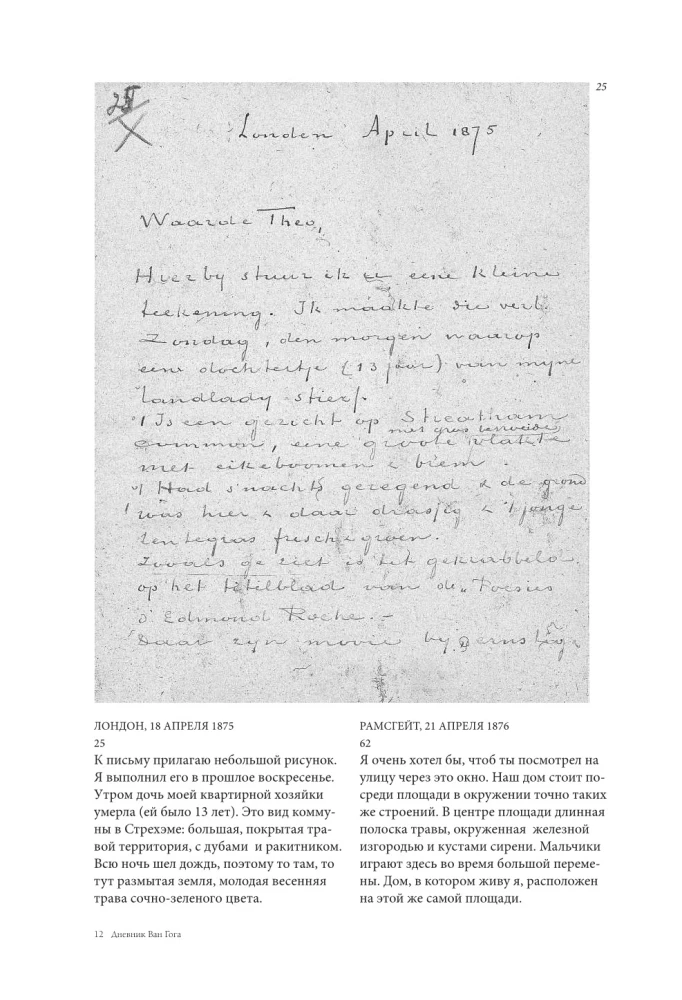 25
25
Londen April 1875
Waarde Theo,
Hierby stuur ik u eene kleine
teekening. Ik maakte die verl.
Zondag, den morgen waarop
een dochtertje (13 jaar) van myne
landlady stierf.
't Is een gezicht op Streatham
met gras begroeide
common, eene groote vlakte
met eikeboomen & brem.
't Had s'nachts geregend & de grond
was hier & daar drassig & 't jonge
lentegras frisch & groen.
Zooals ge ziet is het gekrabbeld
op het titelblad van de „Poesies
d'Edmond Roche".
Daar zyn mooie by, ernstige
ЛОНДОН, 18 АПРЕЛЯ 1875
25
К письму прилагаю небольшой рисунок.
Я выполнил его в прошлое воскресенье.
Утром дочь моей квартирной хозяйки
умерла (ей было 13 лет). Это вид комму-
ны в Стрехэме: большая, покрытая тра-
вой территория, с дубами и ракитником.
Всю ночь шел дождь, поэтому то там, то
тут размытая земля, молодая весенняя
трава сочно-зеленого цвета.
РАМСГЕЙТ, 21 АПРЕЛЯ 1876
62
Я очень хотел бы, чтоб ты посмотрел на
улицу через это окно. Наш дом стоит по-
среди площади в окружении точно таких
же строений. В центре площади длинная
полоска травы, окруженная железной
изгородью и кустами сирени. Мальчики
играют здесь во время большой переме-
ны. Дом, в котором живу я, расположен
на этой же самой площади.
12 Дневник Ван Гога